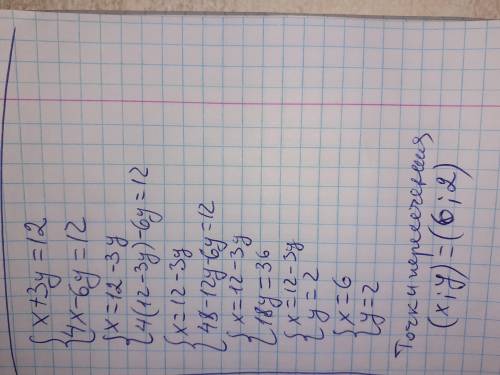 {x+3y=12
{4x-6y=12
{x=12-3y
{4(12-3y)-6y=12
{x=12-3y
{48-12y-6y=12
{x=12-3y
{18y=36
{x=12-3y
{y=2
{x=6
{y=2
Точки пересечения
(x;y)=(6;2)